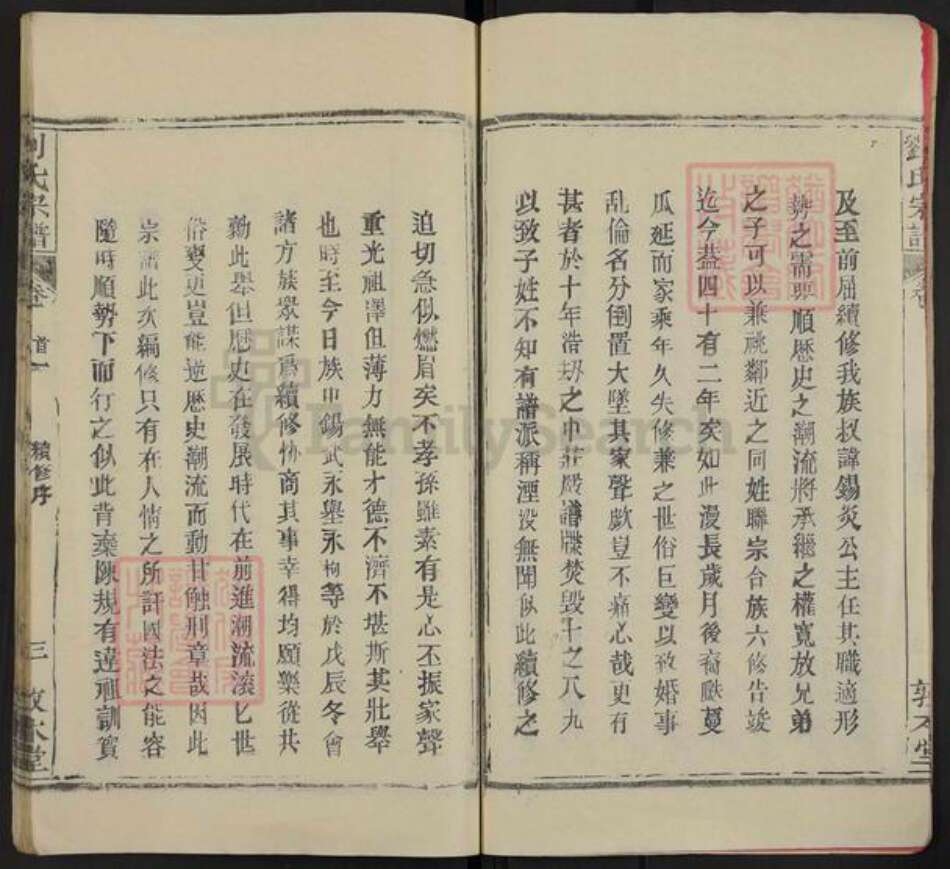 及至前屆續修我族叔諱錫炎公主任其職適形
勢之需要順歷史之潮流將承繼之權寬放兄弟
之子可以兼祧鄰近之同姓聯宗合族六修告竣
迄今葢四十有二年矣如此漫長歲月後裔瓞蔓
瓜延而家乘年久失修兼之世俗巨變以致婚事
乱倫名分倒置大墜其家聲歔豈不痛心哉更有
甚者於十年浩刼之中莊嚴譜牒焚毀十之八九
以致子姓不知有譜派稱湮没無聞似此續修之
迫切急似燃眉矣不孝孫雖素有是心丕振家聲
重光祖澤但薄力無能才德不濟不堪斯其壯舉
也時至今日族中錫武永舉永枸等於戊辰冬會
諸方族眾謀爲續修協商其事幸得均願樂從共
勷此舉但歷史在發展時代在前進潮流滚匕世
俗變更豈能逆歷史潮流而動甘觸刑章哉因此
宗譜此次編修只有在人情之所許國法之能容
隨時順勢下而行之似此背棄陳規有違祖訓實
劉氏宗譜 卷首一 續修序 三 敦本堂
劉氏宗譜 卷 敦本堂
FamilySearch